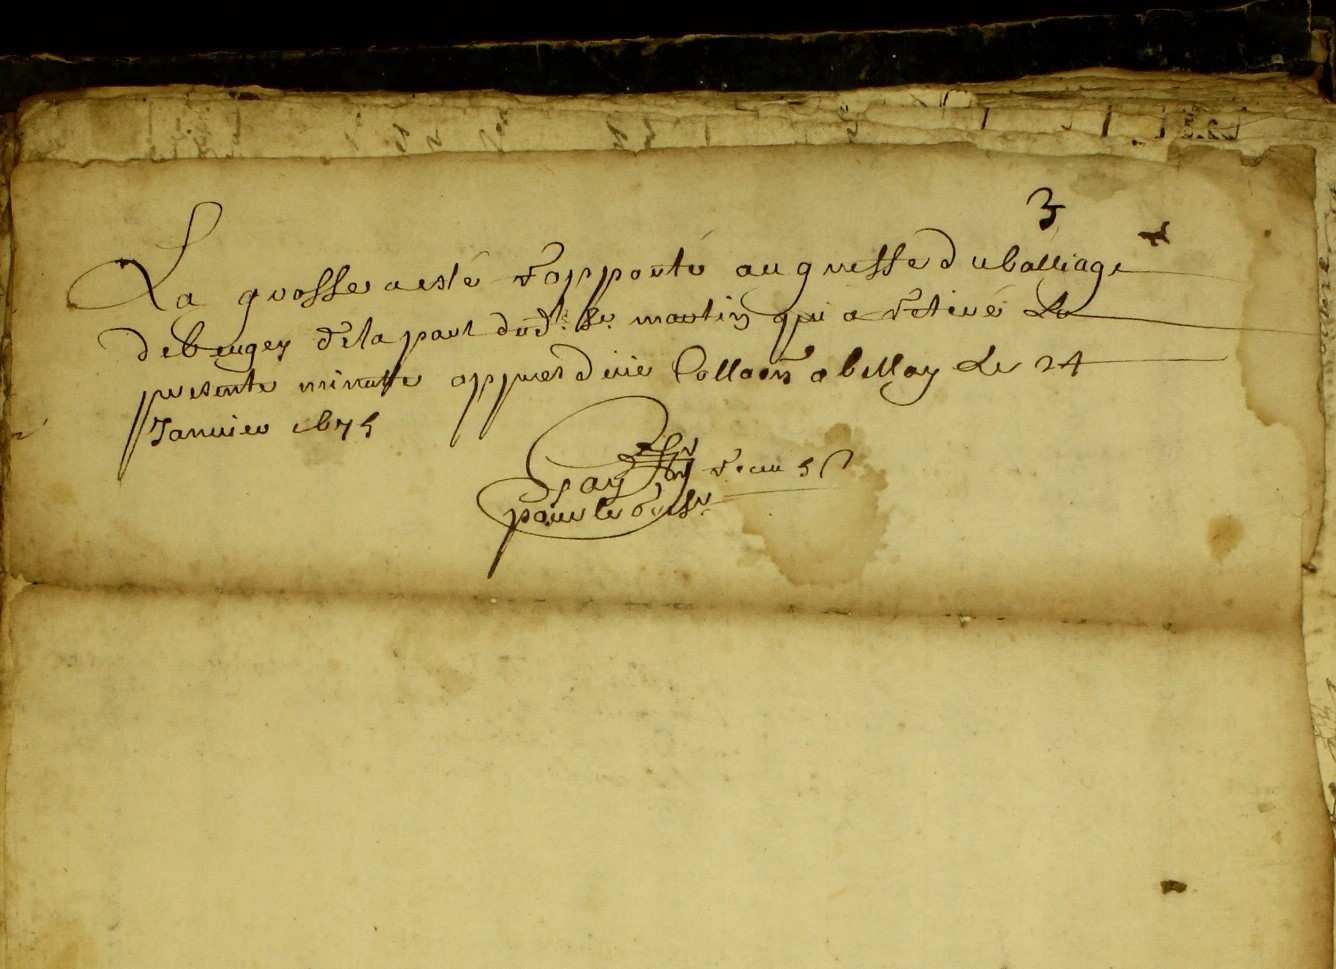 3
La grosse a esté rapporté au greffe du balliage
de beugey de la part dud.t Sr. martin qui a retiré La
presente minutte appres deüe Collaon a bellay Le 24
Janvier 1675
pour le